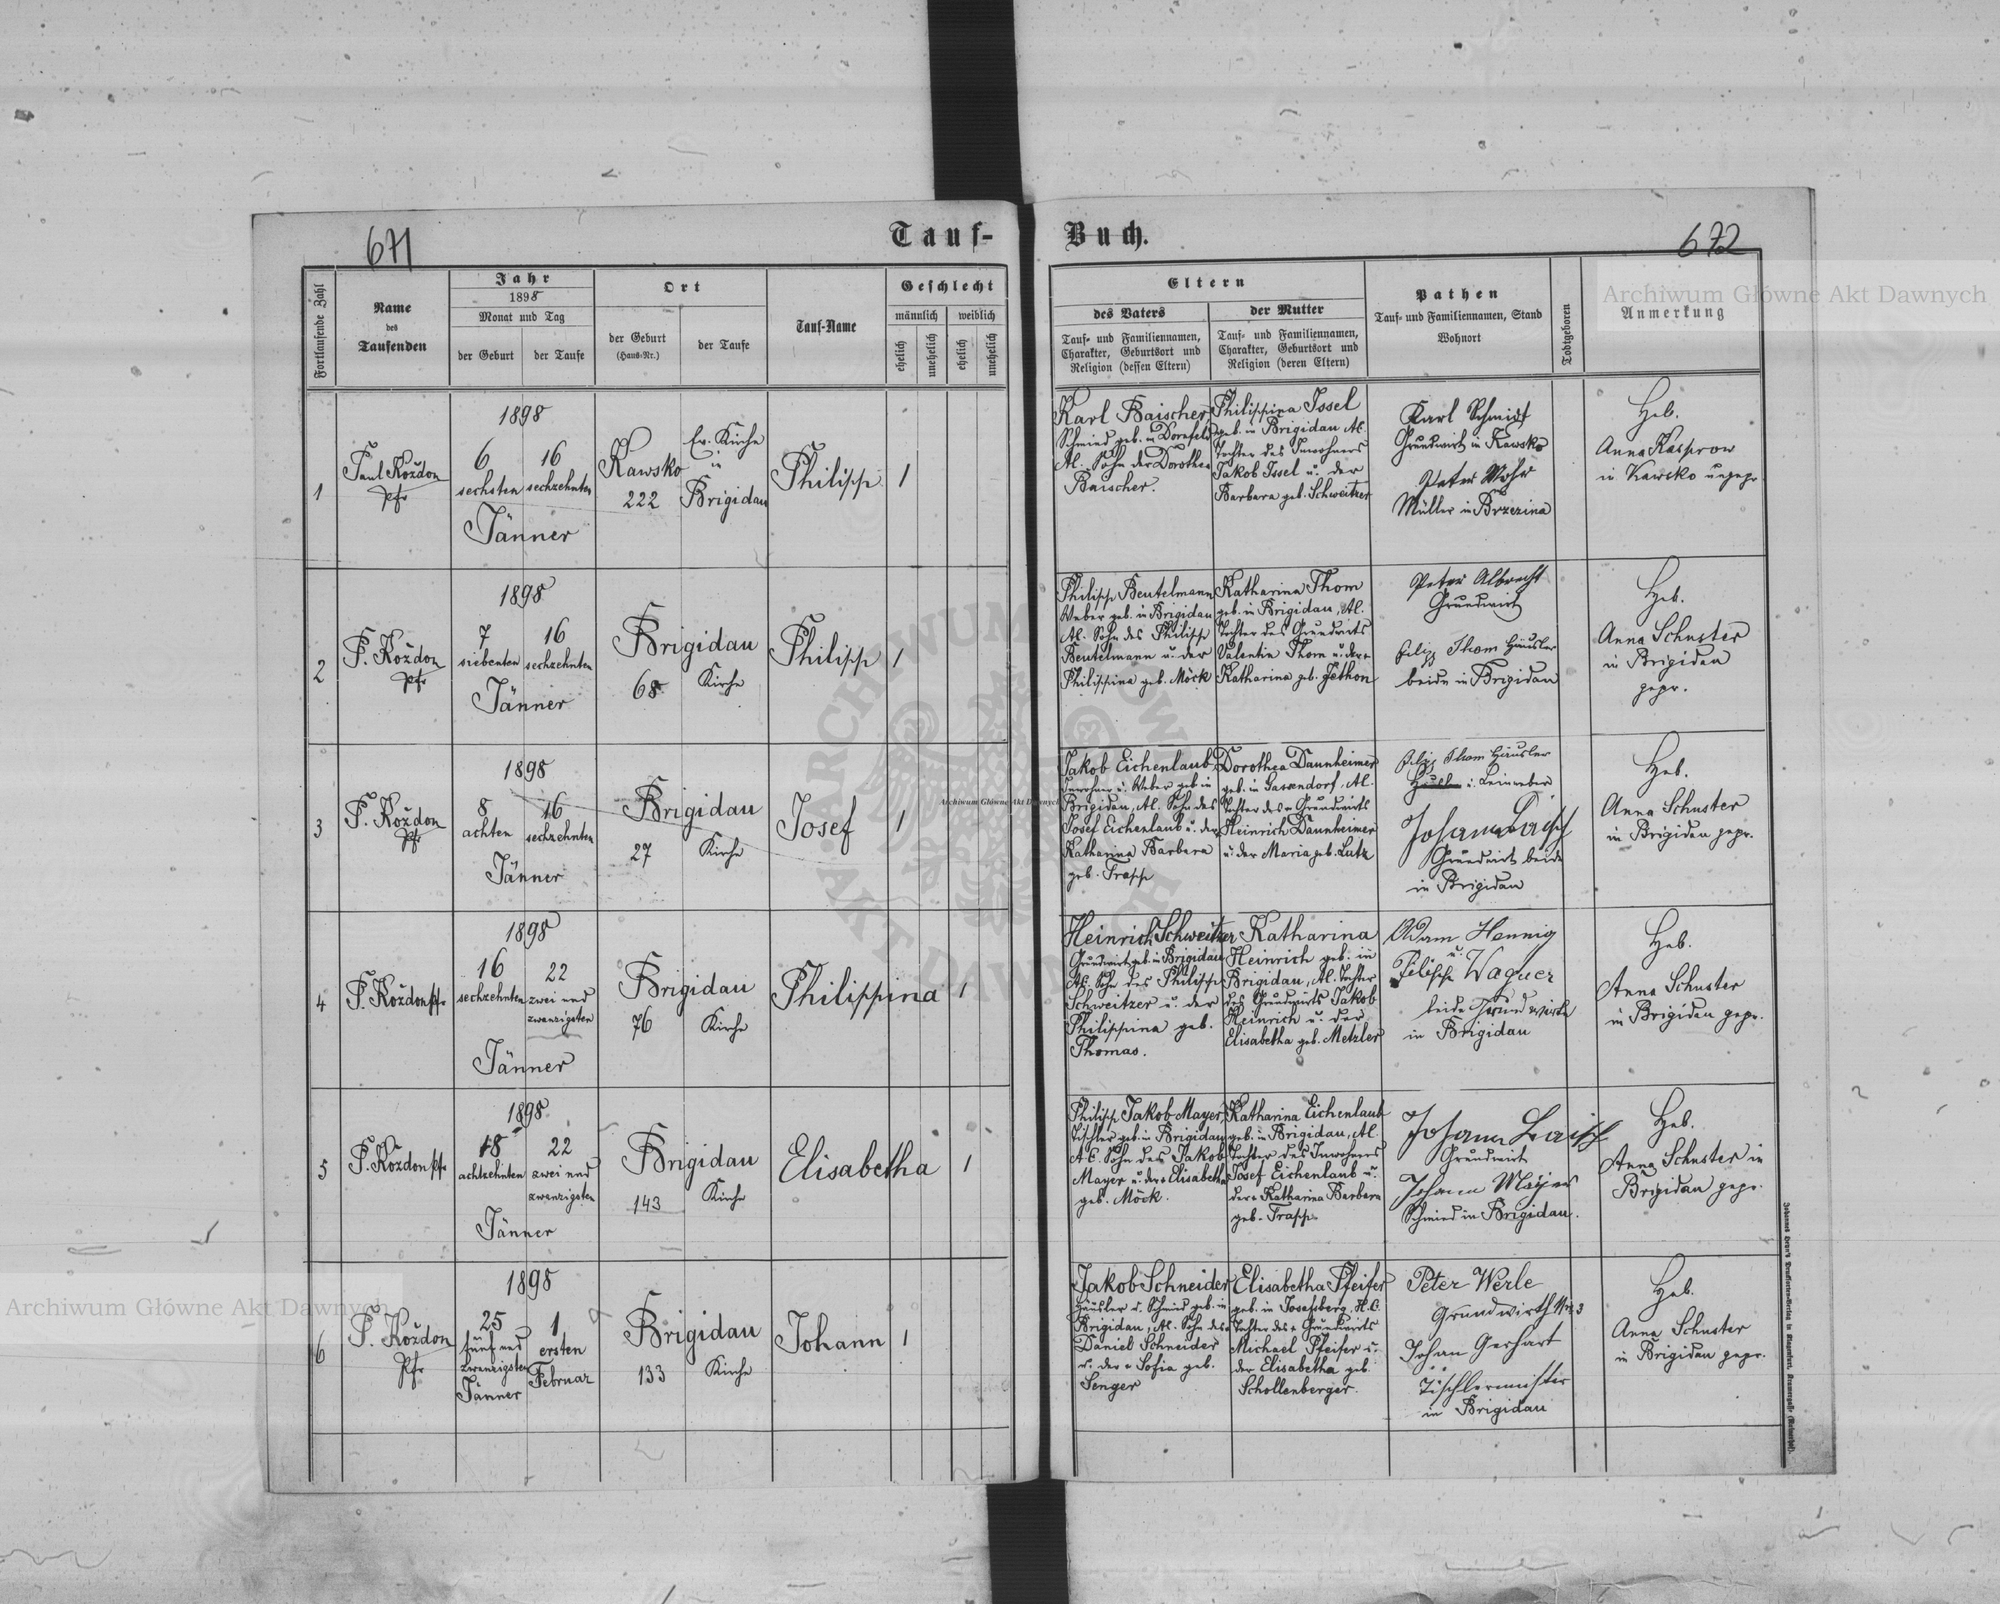 671
Tauf-
Buch.
672
Fortlaufende Zahl
Name
des
Taufenden
Jahr
1898
Monat und Tag
der Geburt
der Taufe
Ort
der Geburt
(Haus-Nr.)
der Taufe
Tauf-Name
Geschlecht
männlich
weiblich
ehelich
unehelich
ehelich
unehelich
Eltern
des Vaters
Tauf- und Familiennamen,
Charakter, Geburtsort und
Religion (dessen Eltern)
der Mutter
Tauf- und Familiennamen,
Charakter, Geburtsort und
Religion (deren Eltern)
Pathen
Tauf- und Familiennamen, Stand
Wohnort
Todtgeboren
Anmerkung
1
Paul Koždon
Pfr
1898
6
sechsten
16
sechzehnten
Jänner
Kawsko
222
Ev. Kirche
in
Brigidau
Philipp
1
Karl Baischer
Schmied geb. in Dornfeld
Al. Sohn der Dorothea
Baischer.
Philippina Issel
geb. in Brigidau Al.
Tochter des Inwohners
Jakob Issel u. der
Barbara geb. Schweitzer
Karl Schmidt
Grundwirt in Kawsko
Peter Mohr
Müller in Brzezina
Heb.
Anna Kasprow
in Kawsko ungepr.
2
P. Koždon
Pfr
1898
7
siebenten
16
sechzehnten
Jänner
Brigidau
68
Kirche
Philipp
1
Philipp Beutelmann
Weber geb. in Brigidau
Al. Sohn des Philipp
Beutelmann u. der
Philippina geb. Möck
Katharina Thom
geb. in Brigidau, Al.
Tochter des Grundwirts
Valentin Thom u. der
Katharina geb. Jethon
Peter Albrecht
Grundwirt
Filip Thom Häusler
beide in Brigidau
Heb.
Anna Schuster
in Brigidau
gepr.
3
P. Koždon
Pfr
1898
8
achten
16
sechzehnten
Jänner
Brigidau
27
Kirche
Josef
1
Jakob Eichenlaub
Inwohner u. Weber geb. in
Brigidau, Al. Sohn des
Josef Eichenlaub u. der
Katharina Barbara
geb. Trapp
Dorothea Daunheimer
geb. in Gassendorf, Al.
Tochter des Grundwirts
Heinrich Daunheimer
u. der Maria geb. Lutz
Filip Thom Häusler
u. Leinweber
Grundwirt beide
in Brigidau
Heb.
Anna Schuster
in Brigidau gepr.
4
P. Koždon Pfr
1898
16
sechzehnten
22
zwei und
zwanzigsten
Jänner
Brigidau
76
Kirche
Philippina
1
Heinrich Schweitzer
Grundwirt geb. in Brigidau
Al. Sohn des Philipp
Schweitzer u. der
Philippina geb.
Thomas.
Katharina
Heinrich geb. in
Brigidau, Al. Tochter
des Grundwirts Jakob
Heinrich u. der
Elisabetha geb. Metzler
Adam Hennig
u.
Filipp Wagner
beide Grundwirte
in Brigidau
Heb.
Anna Schuster
in Brigidau gepr.
5
P. Koždon Pfr
1898
18
achtzehnten
22
zwei und
zwanzigsten
Jänner
Brigidau
143
Kirche
Elisabetha
1
Philipp Jakob Mayer,
Tischler geb. in Brigidau
A.C. Sohn des Jakob
Mayer u. der Elisabetha
geb. Möck.
Katharina Eichenlaub
geb. in Brigidau, Al.
Tochter des Inwohners
Josef Eichenlaub u.
der Katharina Barbara
geb. Trapp.
Grundwirt
Johann Mayer
Schmied in Brigidau.
Heb.
Anna Schuster in
Brigidau gepr.
6
P. Koždon
Pfr
1898
25
fünf und
zwanzigsten
Jänner
1
ersten
Februar
Brigidau
133
Kirche
Johann
1
Jakob Schneider
Häusler u. Schmied geb. in
Brigidau, Al. Sohn des
Daniel Schneider
u. der Sofia geb.
Senger
Elisabetha Pfeifer
geb. in Josefsberg, H.C.
Tochter des Grundwirts
Michael Pfeifer u.
der Elisabetha geb.
Schollenberger.
Peter Werle
Grundwirth
Johan Gerhart
Tischlermeister
in Brigidau
Heb.
Anna Schuster
in Brigidau gepr.
Archiwum Główne Akt Dawnych
Archiwum Główne Akt Dawnych
Archiwum Główne Akt Dawnych
ARCHIWUM GŁÓWNE AKT DAWNYCH